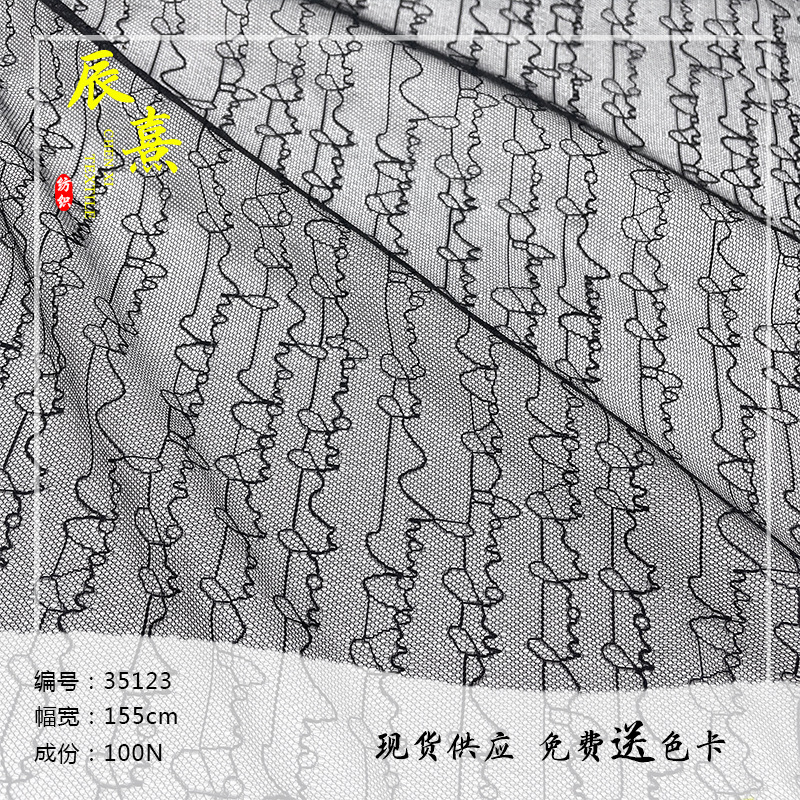 辰熹
CHEN XI
TEXTILE
纺织
编号：35123
幅宽：155cm
成份：100N
现货供应 免费送色卡
happy